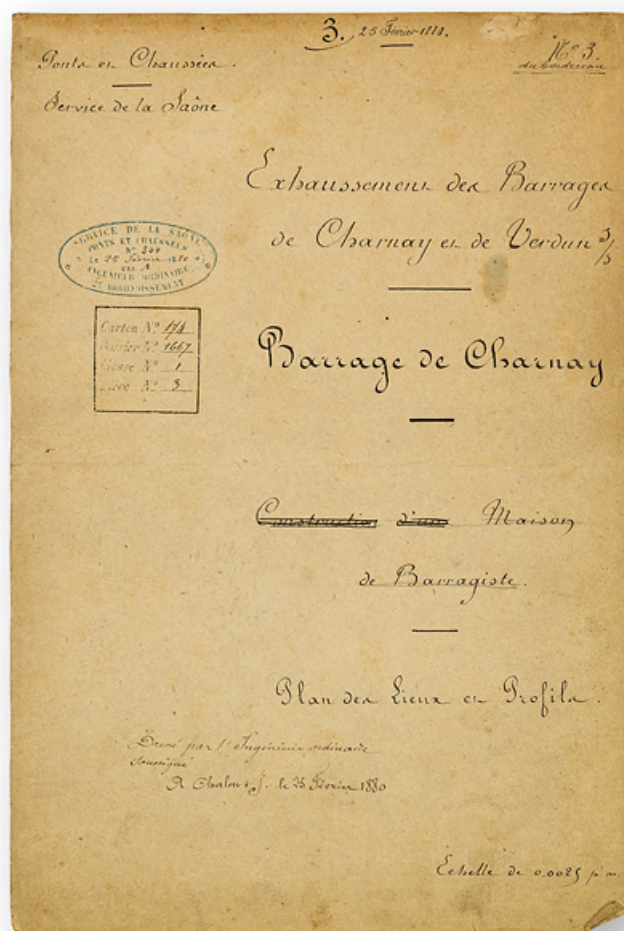 3. 25 Février 1880.
N° 3.
du bordereau
Ponts et Chaussées.
Service de la Saône
Exhaussement des Barrages
de Charnay et de Verdun s/s
SERVICE DE LA SAÔNE
PONTS ET CHAUSSÉES
N° 344
Le 25 Février 1880
INGÉNIEUR ORDINAIRE
2e ARRONDISSEMENT
Barrage de Charnay
Carton N° 174
Dossier N° 1667
Liasse N° 1
Pièce N° 3
Construction d'une Maison
de Barragiste.
Plan des Lieux et Profils.
Dressé par l'Ingénieur ordinaire
soussigné
A Chalon s/S. le 25 Février 1880
Echelle de 0.0025 p. m.